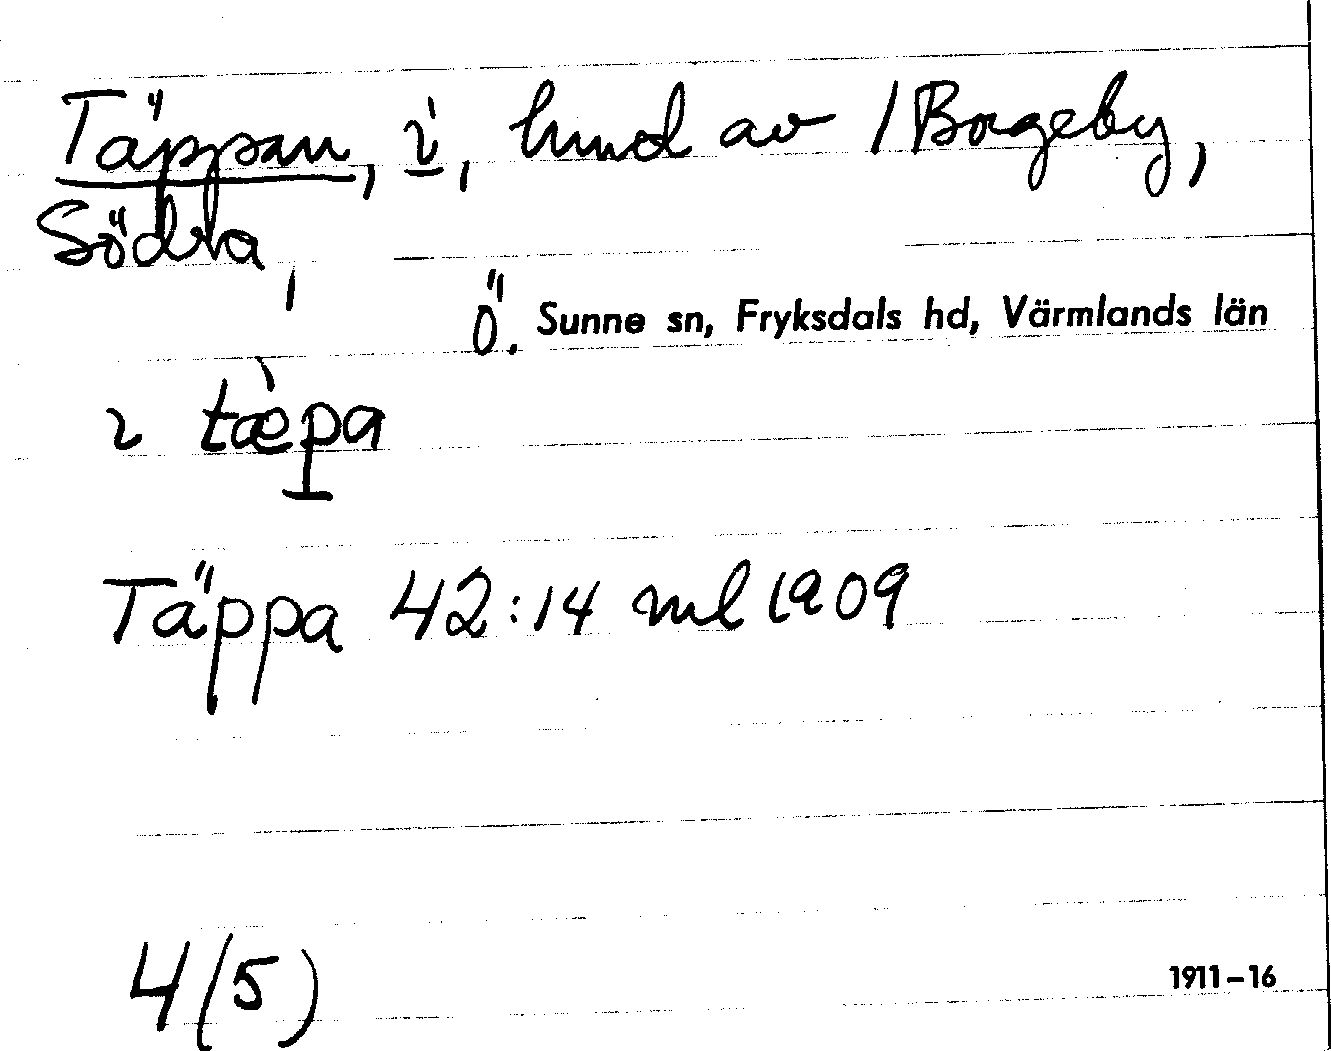 Täppan, i, hmd av /Borgeby,
Södra,
Ö. Sunne sn, Fryksdals hd, Värmlands län
i tæ̀pa
Täppa 42:14 ml 1909
4(5)
1911-16